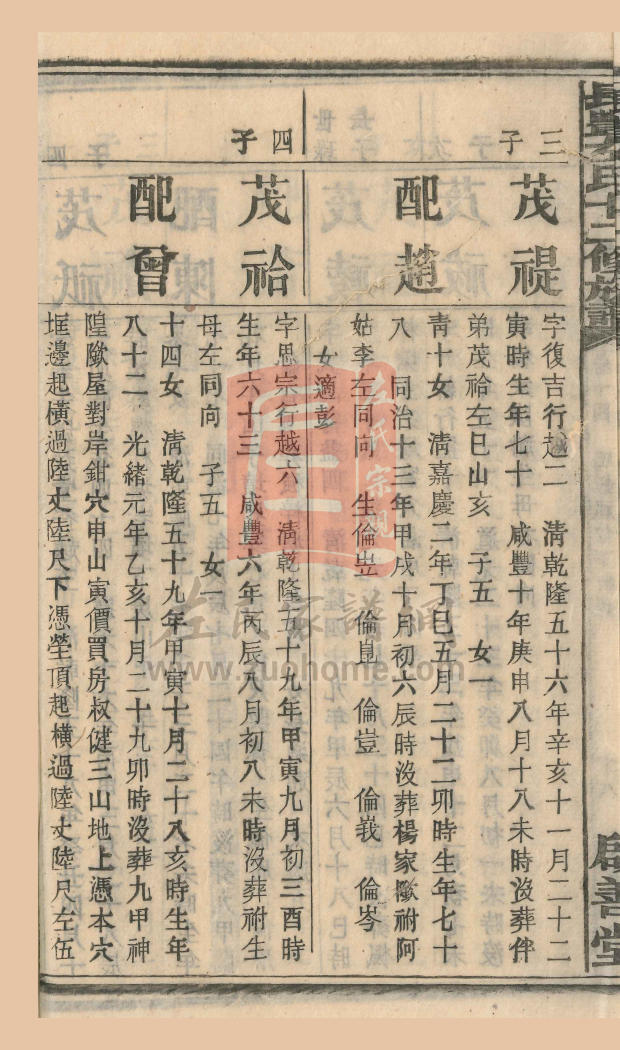 氏十二修族譜
啟善堂
三子
茂禔
字復吉行越二 清乾隆五十六年辛亥十一月二十二
寅時生年七十 咸豐十年庚申八月十八未時沒葬伴
弟茂祫左巳山亥 子五 女一
配趙
青十女 清嘉慶二年丁巳五月二十二卯時生年七十
八 同治十三年甲戌十月初六辰時沒葬楊家祔阿
姑李左同向 生倫岦 倫崑 倫豈 倫峩 倫岑
女適彭
四子
茂祫
字思宗行越六 清乾隆五十九年甲寅九月初三酉時
生年六十三 咸豐六年丙辰八月初八未時沒葬祔生
母左同向 子五 女一
配曾
十四女 清乾隆五十九年甲寅十月二十八亥時生年
八十二 光緒元年乙亥十月二十九卯時沒葬九甲神
隍屋對岸鉗穴申山寅價買房叔健三山地上憑本穴
邊起橫過陸丈陸尺下憑塋頂起橫過陸丈陸尺左伍
左氏宗親
左氏家譜網
www.zuohome.com